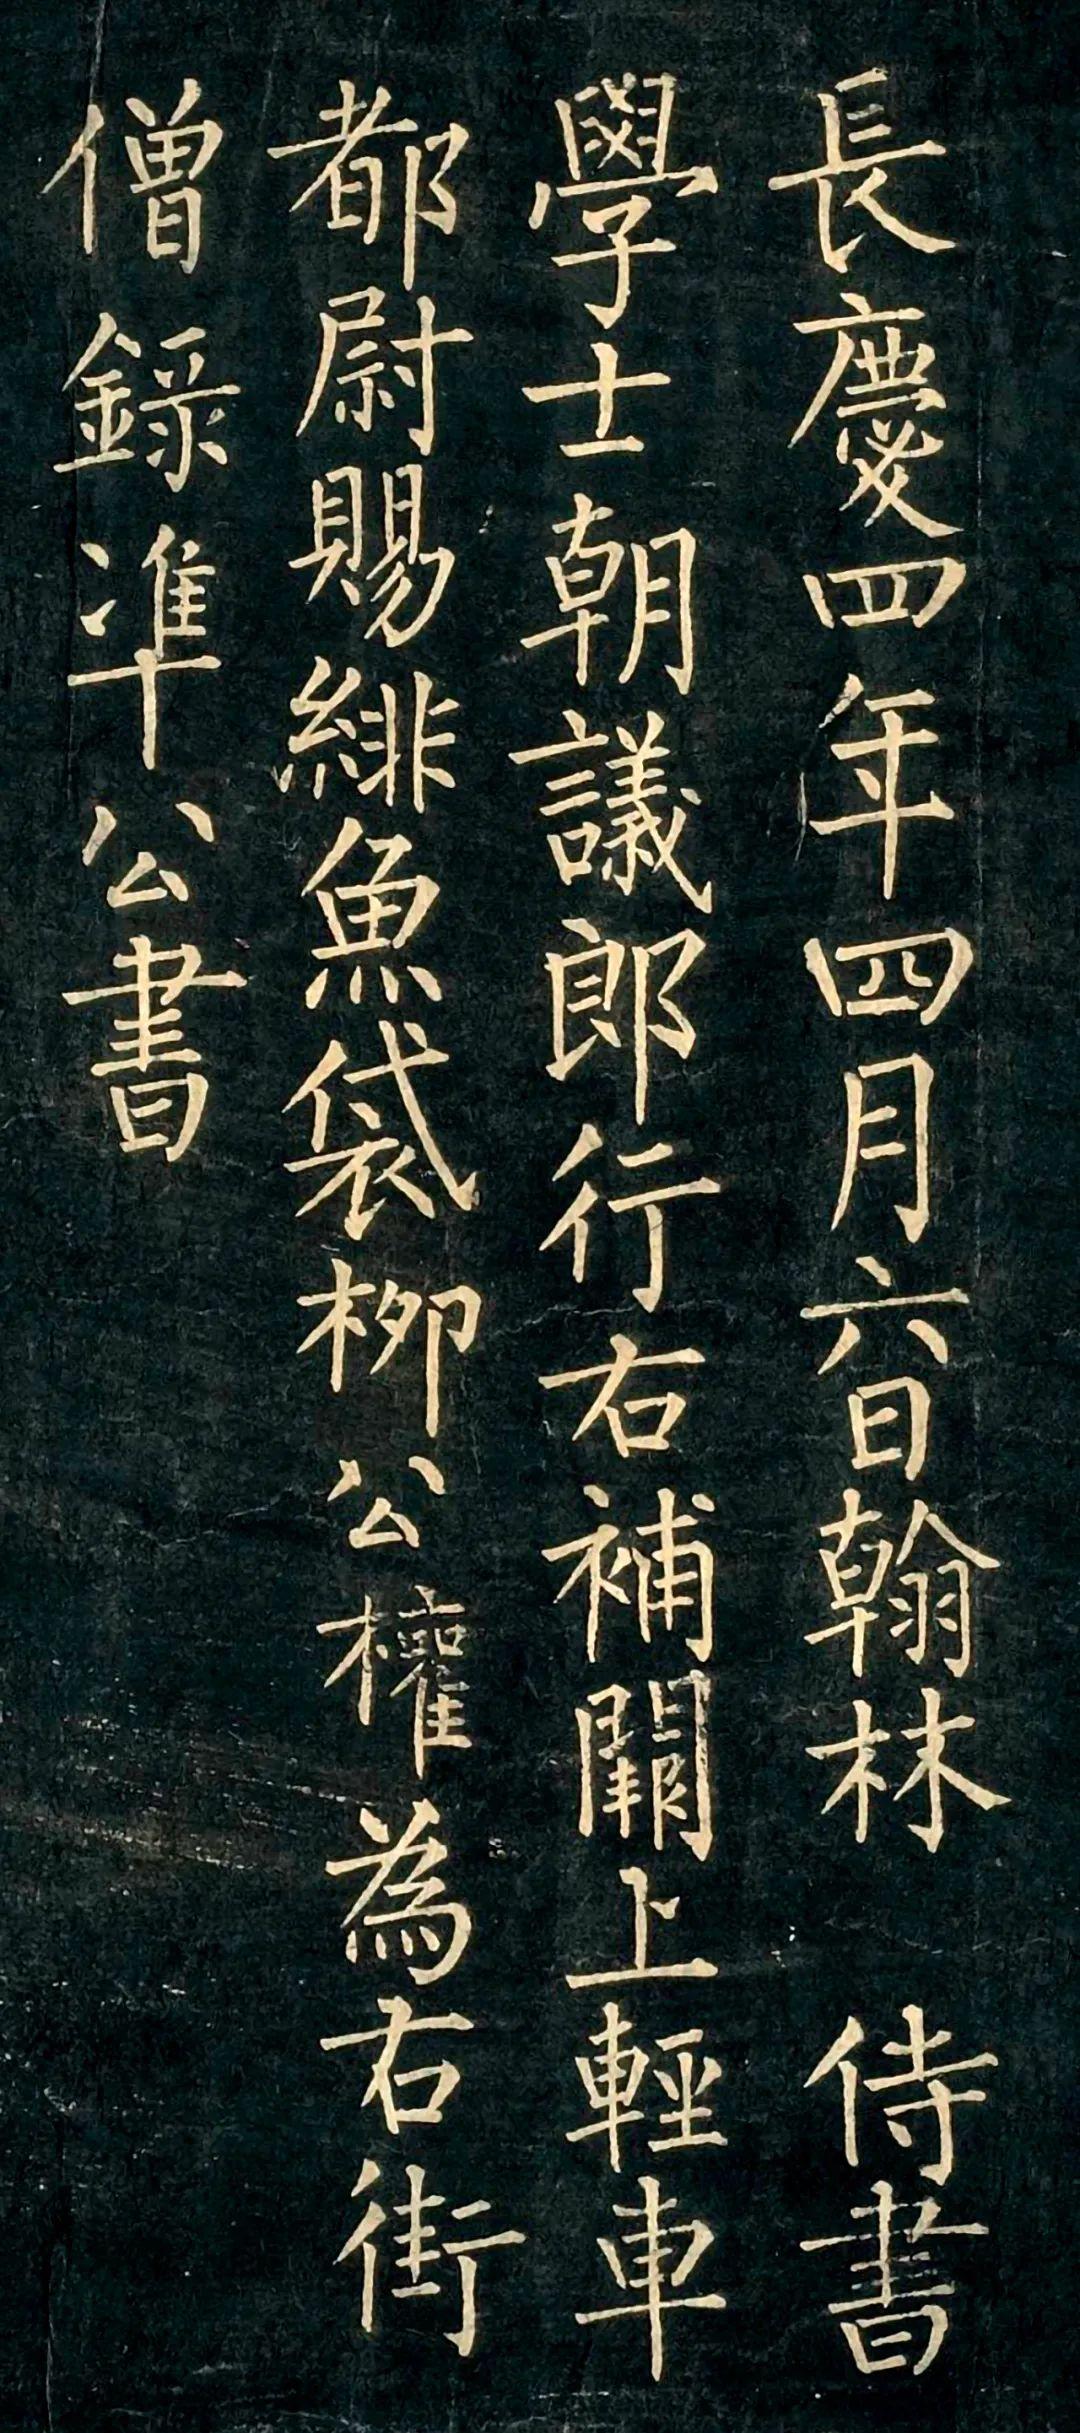 長慶四年四月六日翰林 侍書
學士朝議郎行右補闕上輕車
都尉賜緋魚袋柳公權為右街
僧録準公書